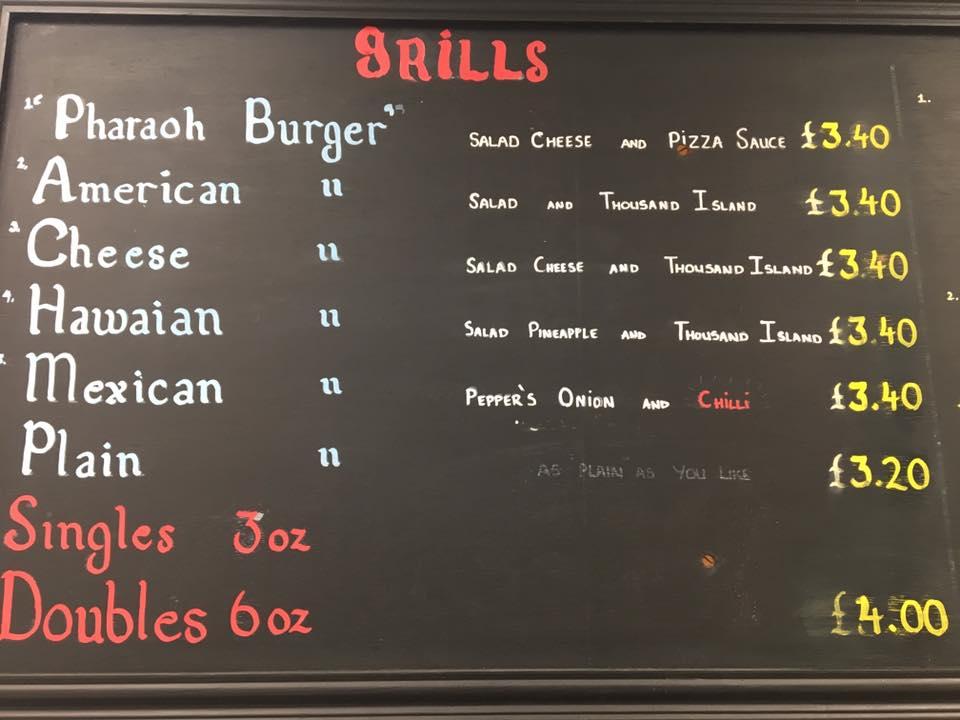 GRILLS
"Pharaoh Burger" SALAD CHEESE AND PIZZA SAUCE £3.40 1.
2. American " SALAD AND THOUSAND ISLAND £3.40
Cheese " SALAD CHEESE AND THOUSAND ISLAND £3.40
4. Hawaiian " SALAD PINEAPPLE AND THOUSAND ISLAND £3.40 2.
Mexican " PEPPER'S ONION AND CHILLI £3.40
Plain " AS PLAIN AS YOU LIKE £3.20
Singles 3oz
Doubles 6oz £4.00